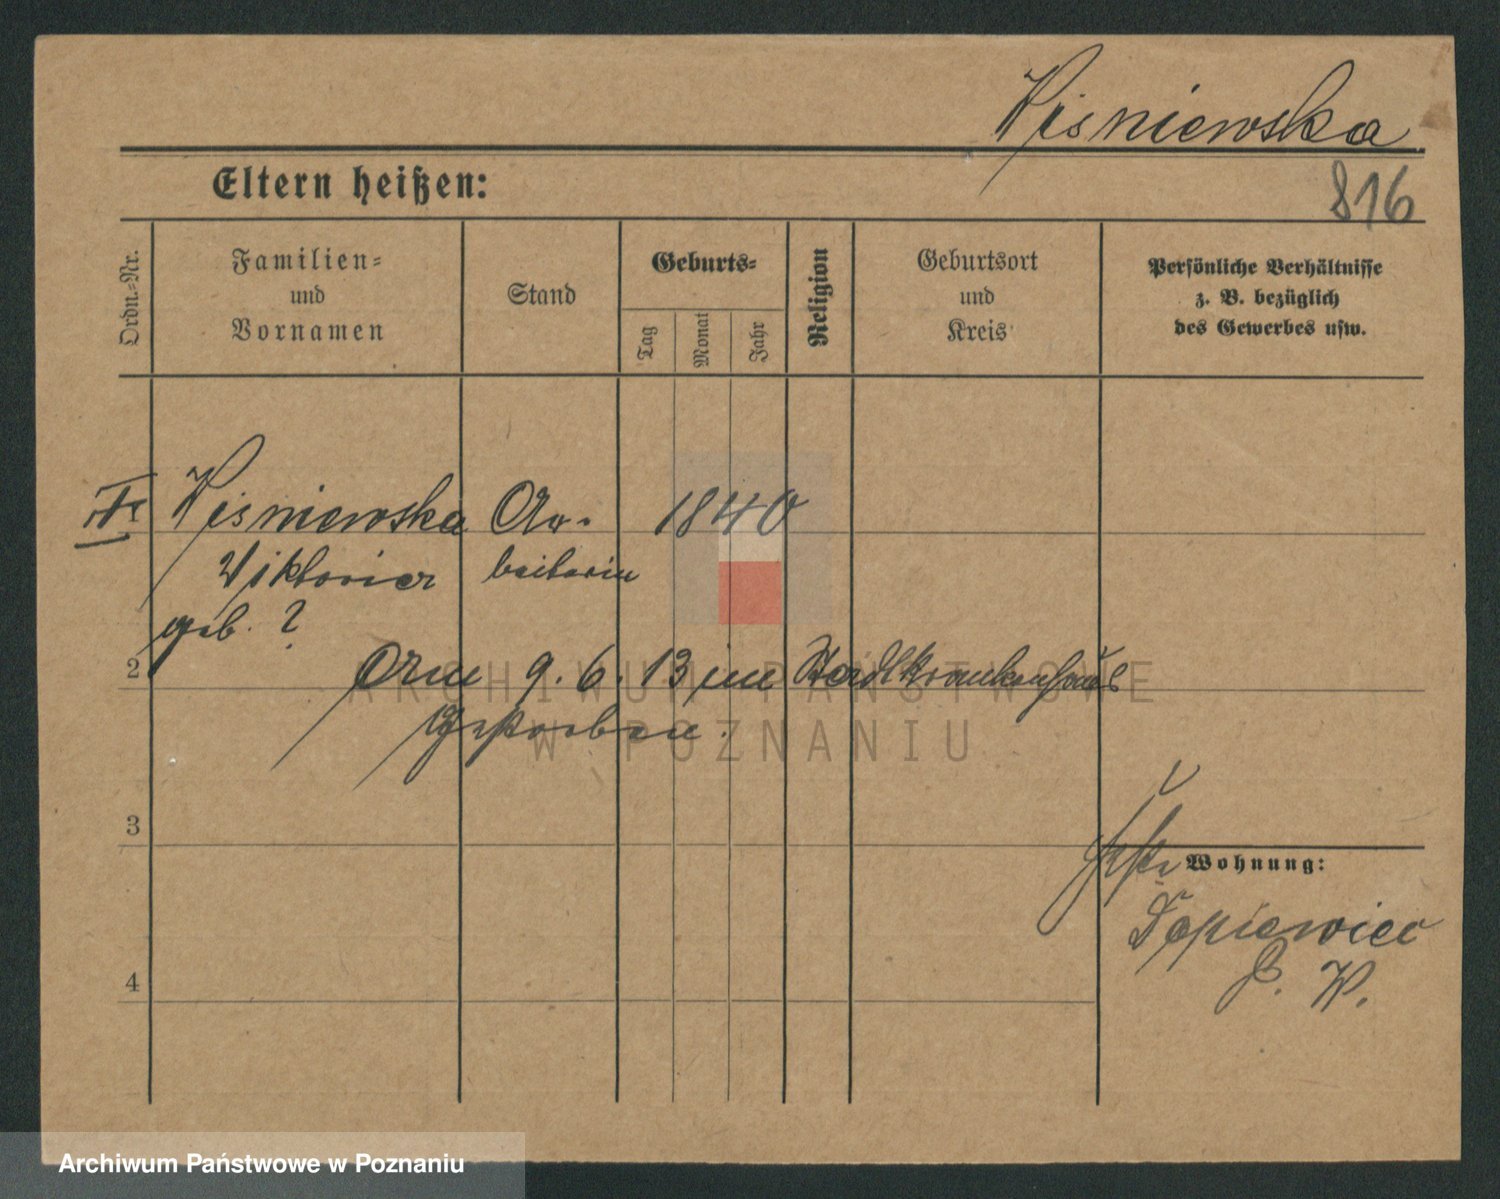 Wisniewska
816
Eltern heißen:
Ordn.-Nr.
Familien-
und
Vornamen
Stand
Geburts-
Tag
Monat
Jahr
Religion
Geburtsort
und
Kreis
Persönliche Verhältnisse
z. B. bezüglich
des Gewerbes usw.
1
Wisniewska Ar- 1840
Wiktoria beiterin
geb. ?
2
Am 9. 6. 13 im Stadtkrankenhaus
gestorben.
3
Wohnung:
4
P. W.
ARCHIWUM PAŃSTWOWE
W POZNANIU
Archiwum Państwowe w Poznaniu